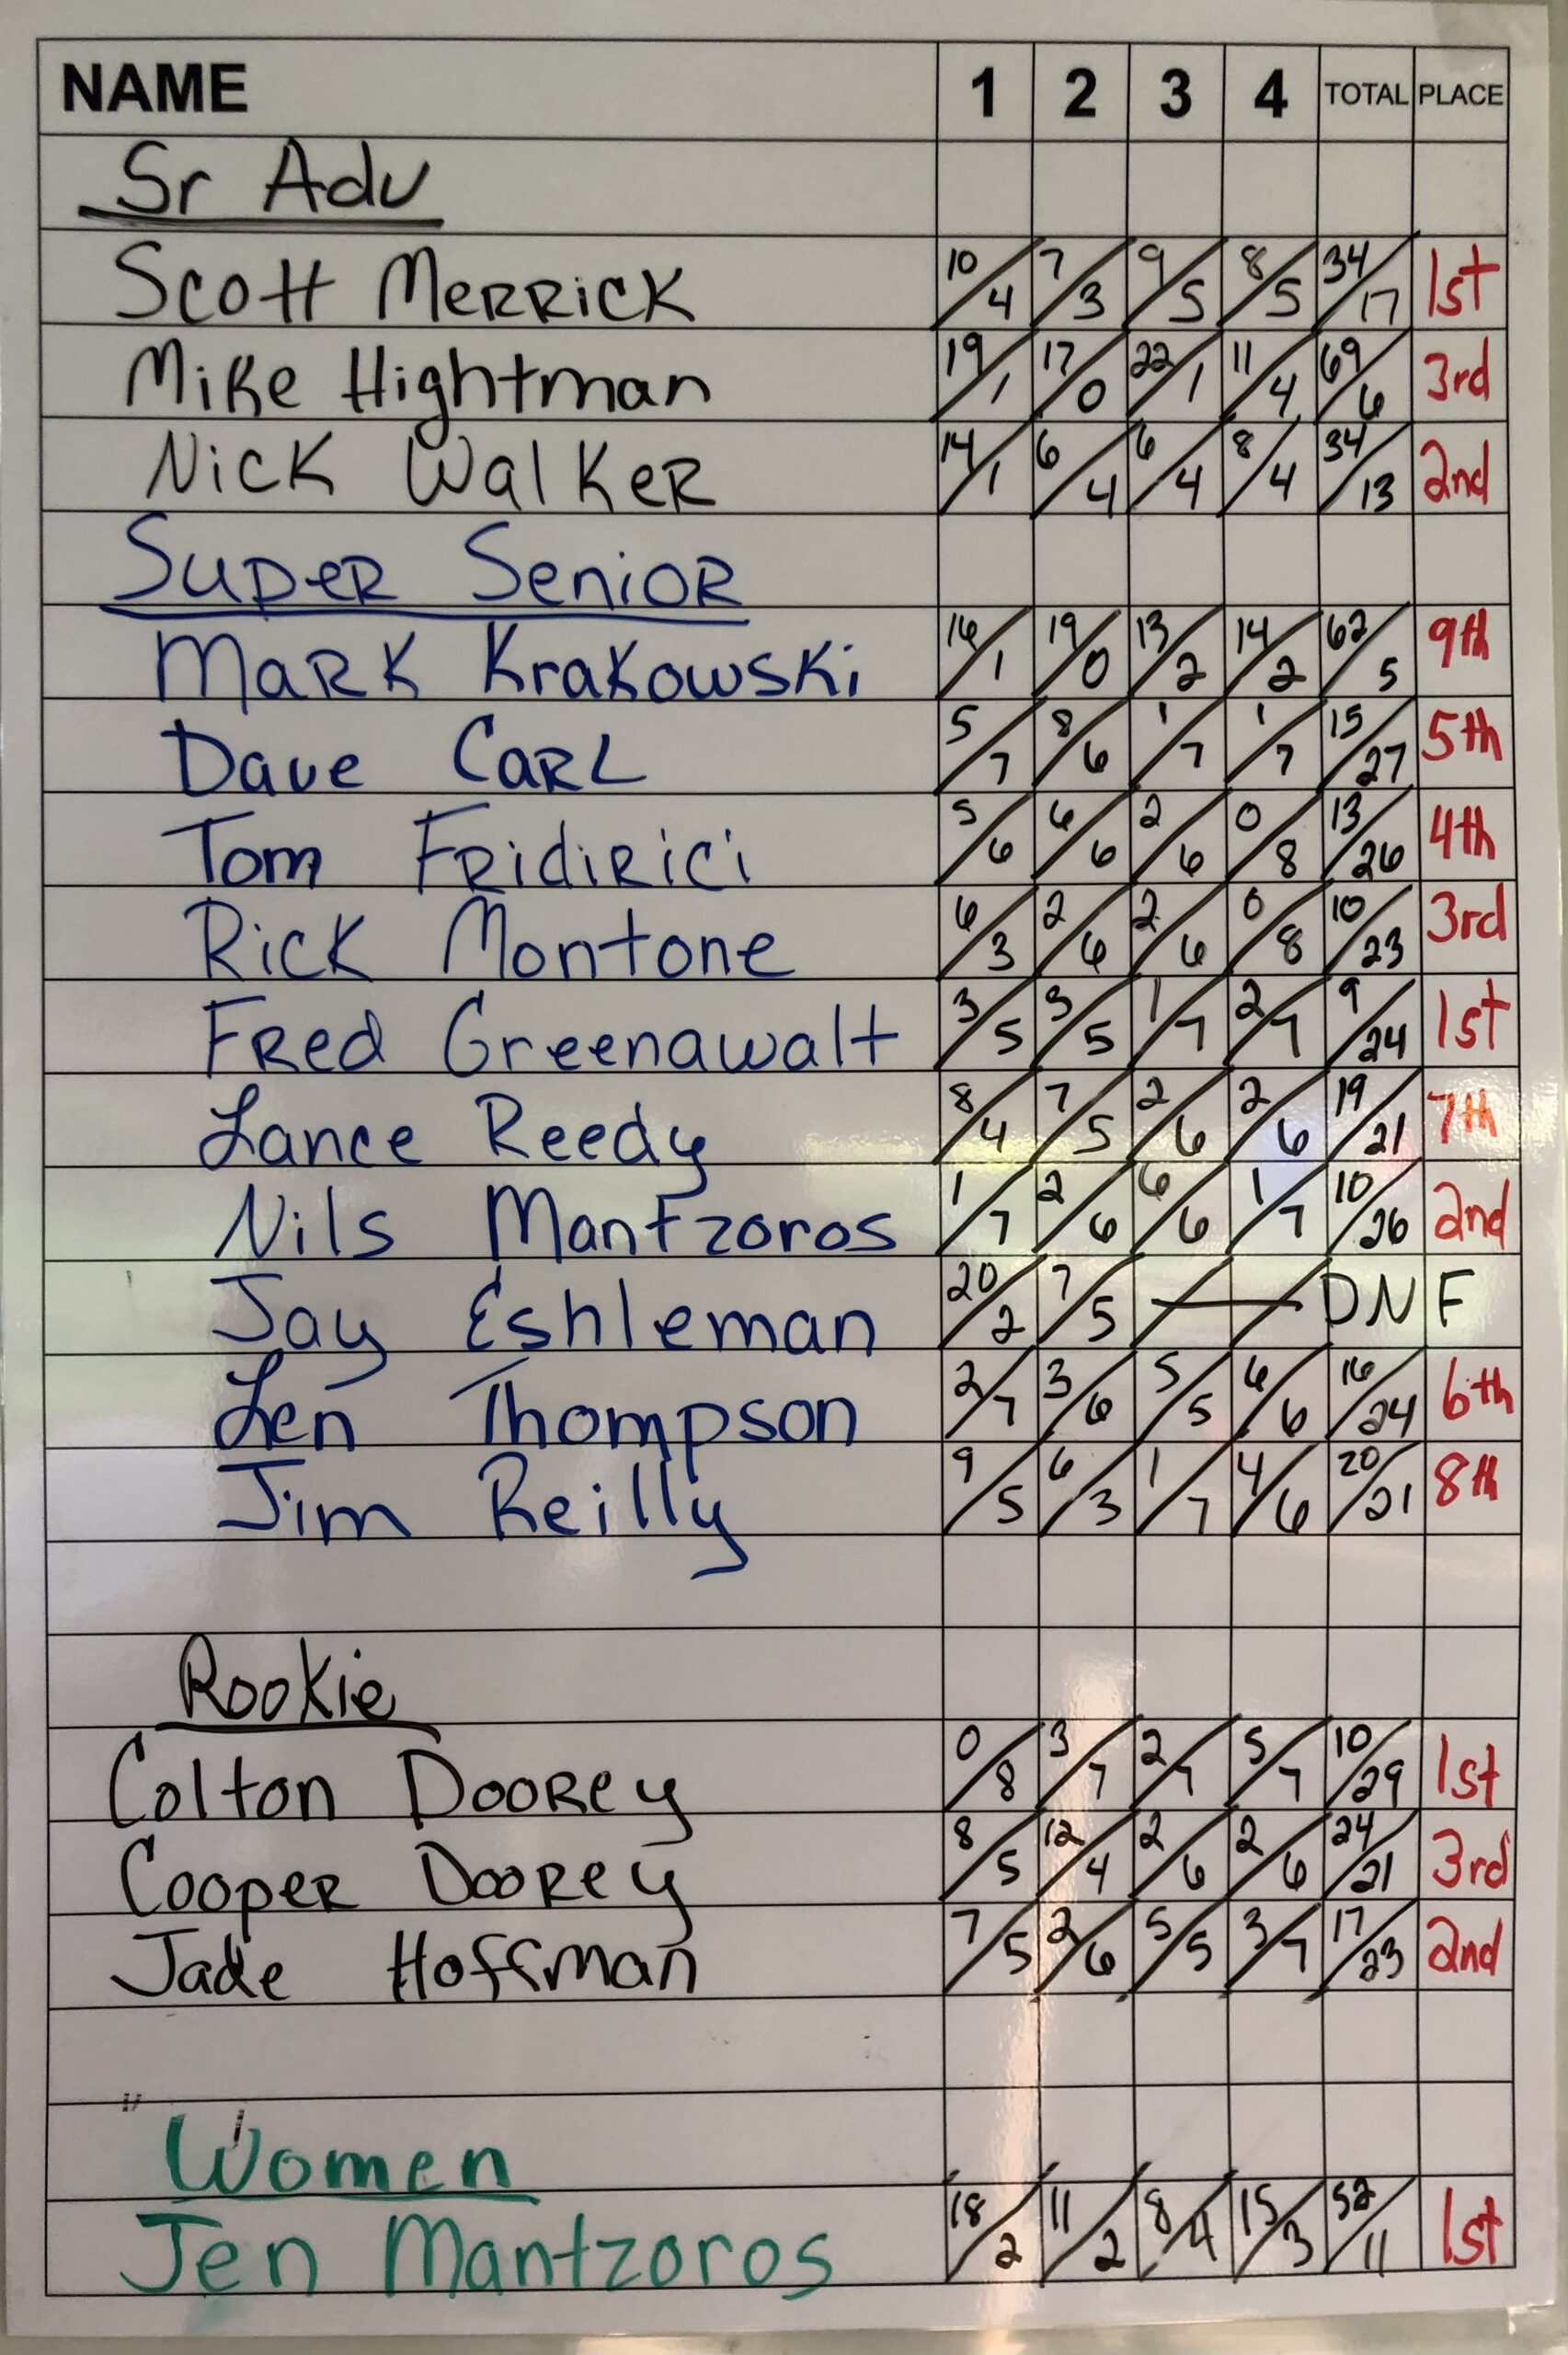 NAME 1 2 3 4 TOTAL PLACE
Sr Adv
Scott Merrick 10/4 7/3 9/5 8/5 34/17 1st
Mike Hightman 19/1 17/0 22/1 11/4 69/6 3rd
Nick Walker 14/1 6/4 6/4 8/4 34/13 2nd
Super Senior
Mark Krakowski 16/1 19/0 13/2 14/2 62/5 9th
Dave Carl 5/7 8/6 1/7 1/7 15/27 5th
Tom Fridirici 5/6 6/6 2/6 0/8 13/26 4th
Rick Montone 6/3 2/6 2/6 0/8 10/23 3rd
Fred Greenawalt 3/5 3/5 1/7 2/7 9/24 1st
Lance Reedy 8/4 7/5 2/6 2/6 19/21 7th
Nils Mantzoros 1/7 2/6 6/6 1/7 10/26 2nd
Jay Eshleman 20/2 7/5 DNF
Len Thompson 2/7 3/6 5/5 6/6 16/24 6th
Jim Reilly 9/5 6/3 1/7 4/6 20/21 8th
Rookie
Colton Doorey 0/8 3/7 2/7 5/7 10/29 1st
Cooper Doorey 8/5 12/4 2/6 2/6 24/21 3rd
Jade Hoffman 7/5 2/6 5/5 3/7 17/23 2nd
Women
Jen Mantzoros 18/2 11/2 8/4 15/3 52/11 1st